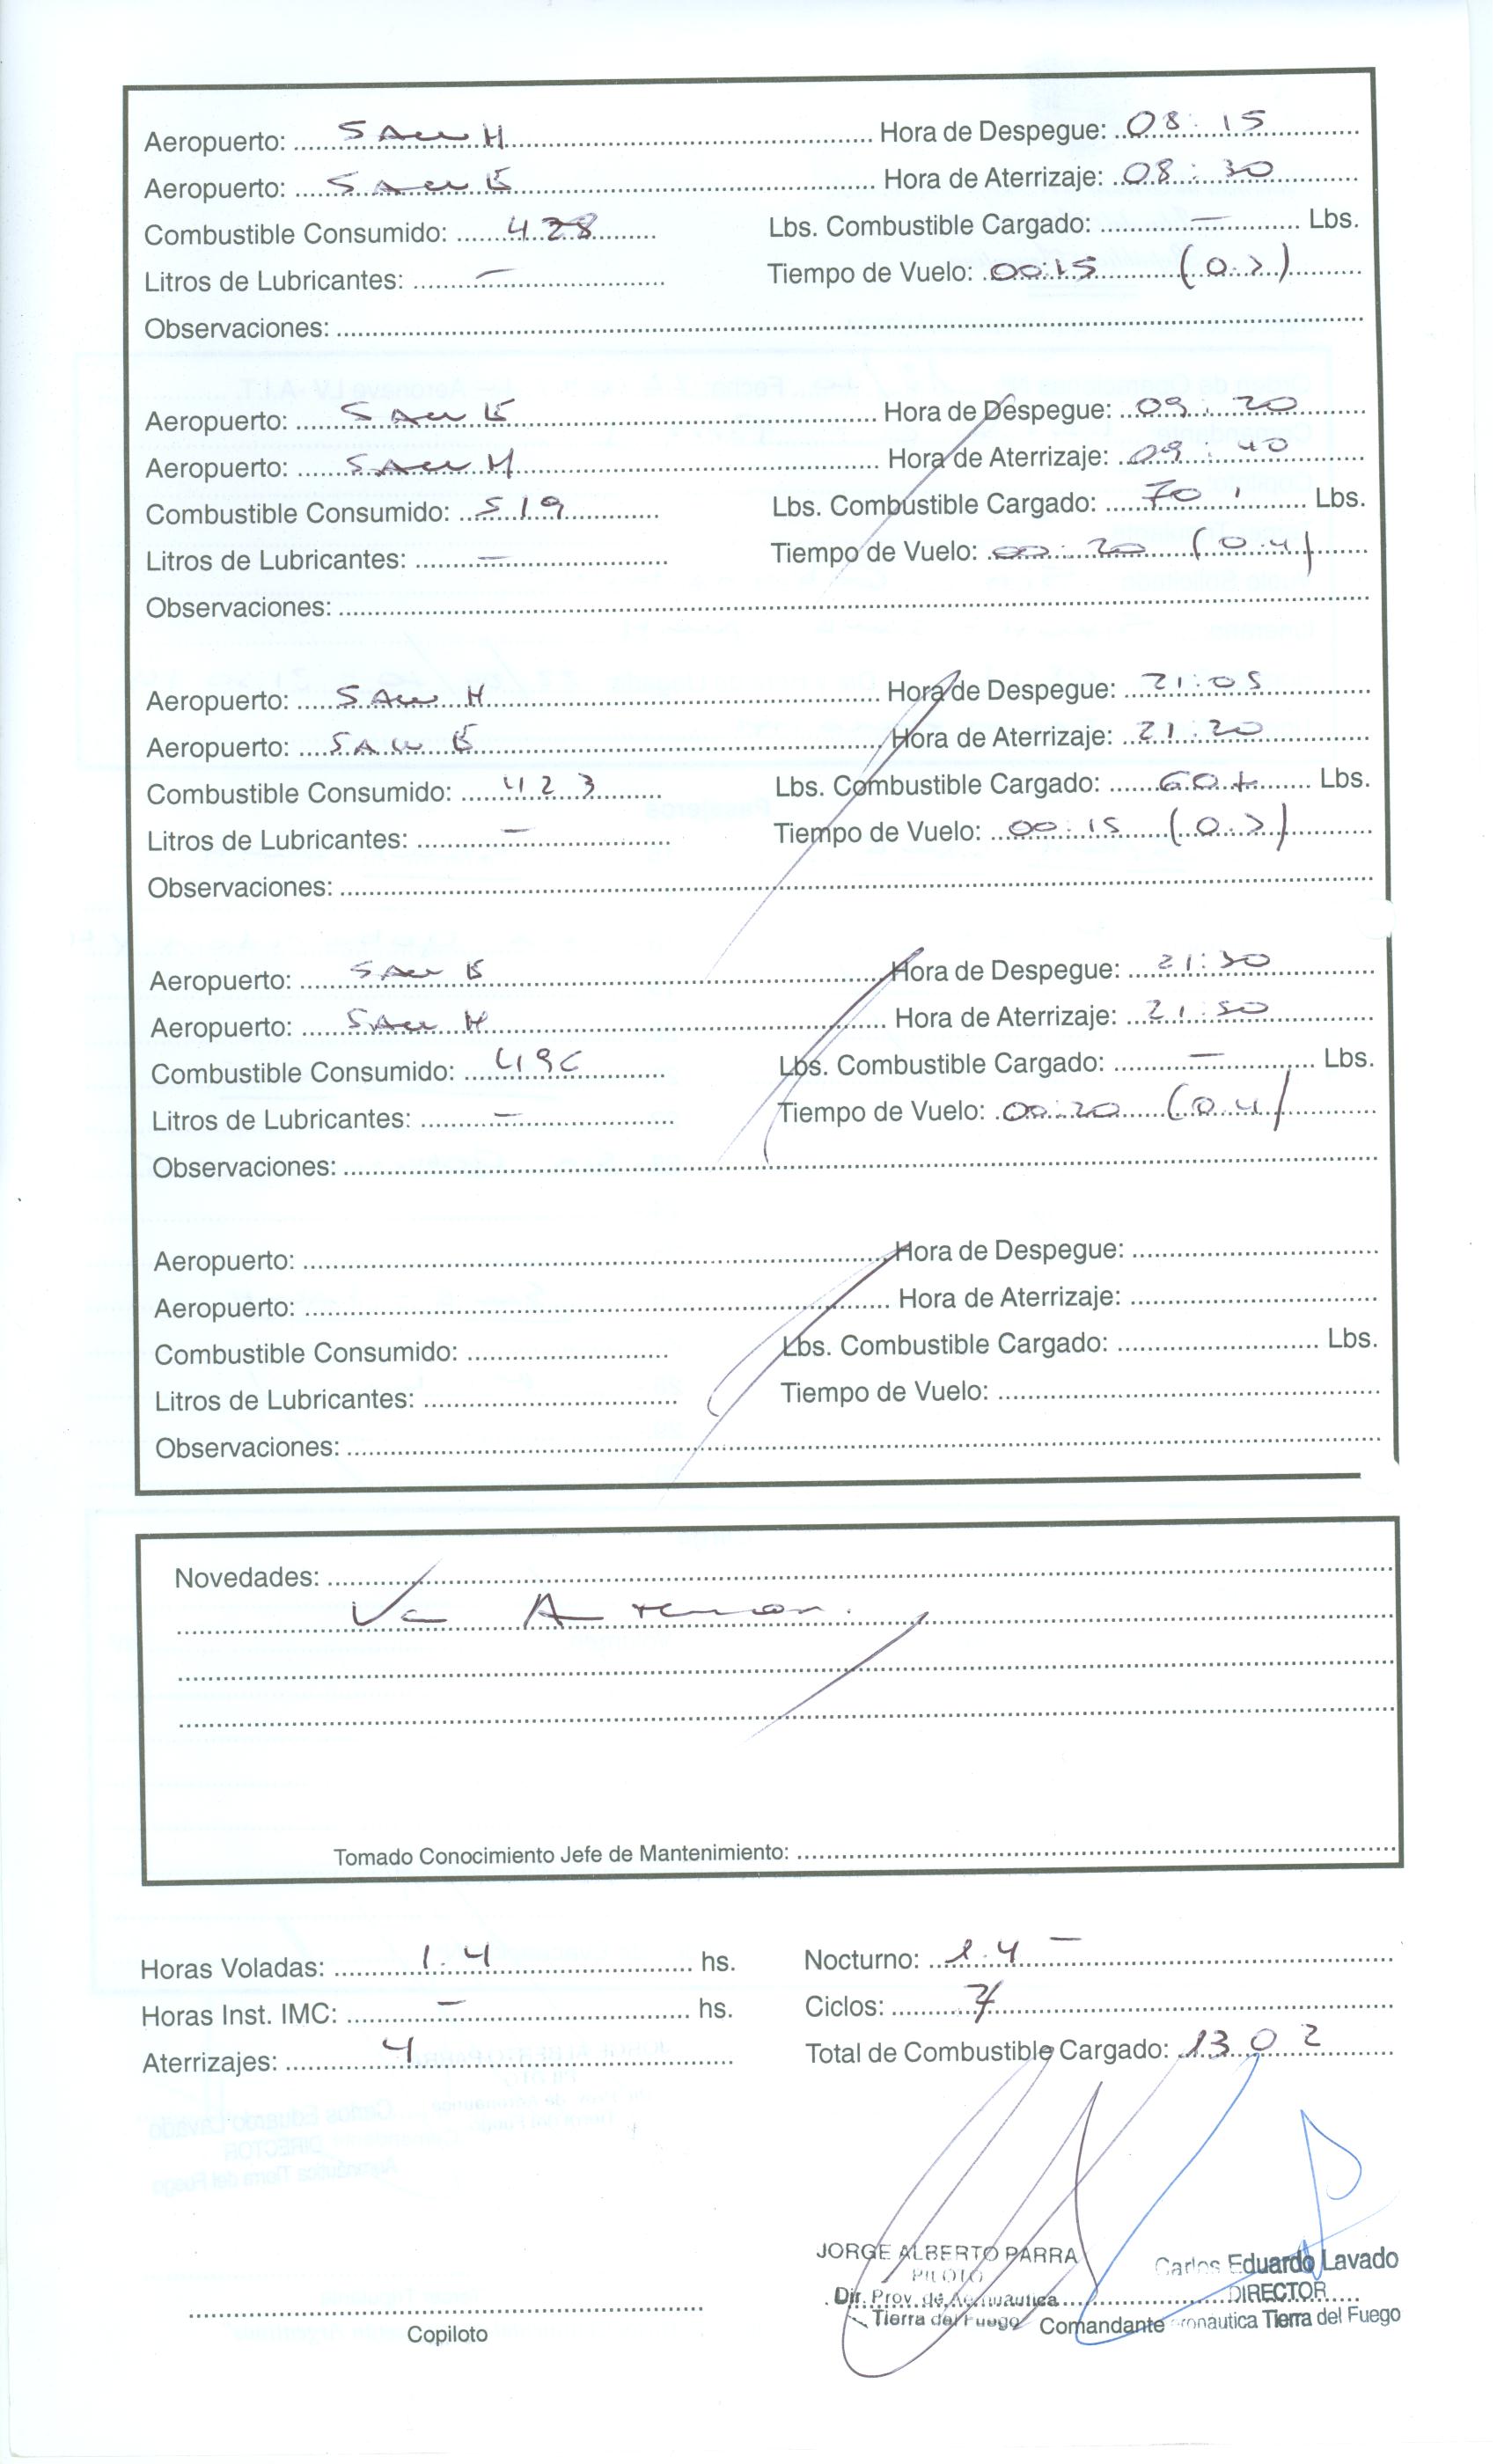 Aeropuerto: SAWH Hora de Despegue: 08:15
Aeropuerto: SAWE Hora de Aterrizaje: 08:30
Combustible Consumido: 428 Lbs. Combustible Cargado: — Lbs.
Litros de Lubricantes: — Tiempo de Vuelo: 00:15 (0.3)
Observaciones:
Aeropuerto: SAWE Hora de Despegue: 09:20
Aeropuerto: SAWH Hora de Aterrizaje: 09:40
Combustible Consumido: 519 Lbs. Combustible Cargado: 701 Lbs.
Litros de Lubricantes: — Tiempo de Vuelo: 00:20 (0.4)
Observaciones:
Aeropuerto: SAWH Hora de Despegue: 21:05
Aeropuerto: SAWE Hora de Aterrizaje: 21:20
Combustible Consumido: 423 Lbs. Combustible Cargado: Lbs.
Litros de Lubricantes: — Tiempo de Vuelo: 00:15 (0.3)
Observaciones:
Aeropuerto: SAWE Hora de Despegue: 21:30
Aeropuerto: SAWH Hora de Aterrizaje: 21:50
Combustible Consumido: 496 Lbs. Combustible Cargado: — Lbs.
Litros de Lubricantes: — Tiempo de Vuelo: 00:20 (0.4)
Observaciones:
Aeropuerto: Hora de Despegue:
Aeropuerto: Hora de Aterrizaje:
Combustible Consumido: Lbs. Combustible Cargado: Lbs.
Litros de Lubricantes: Tiempo de Vuelo:
Observaciones:
Novedades:
Tomado Conocimiento Jefe de Mantenimiento:
Horas Voladas: 1.4 hs. Nocturno: 1.4 —
Horas Inst. IMC: — hs. Ciclos:
Aterrizajes: 4 Total de Combustible Cargado: 1302
JORGE ALBERTO PARRA Carlos Eduardo Lavado
PILOTO DIRECTOR
Dir. Prov. de Aeronautica
Tierra del Fuego Comandante ronáutica Tierra del Fuego
Copiloto